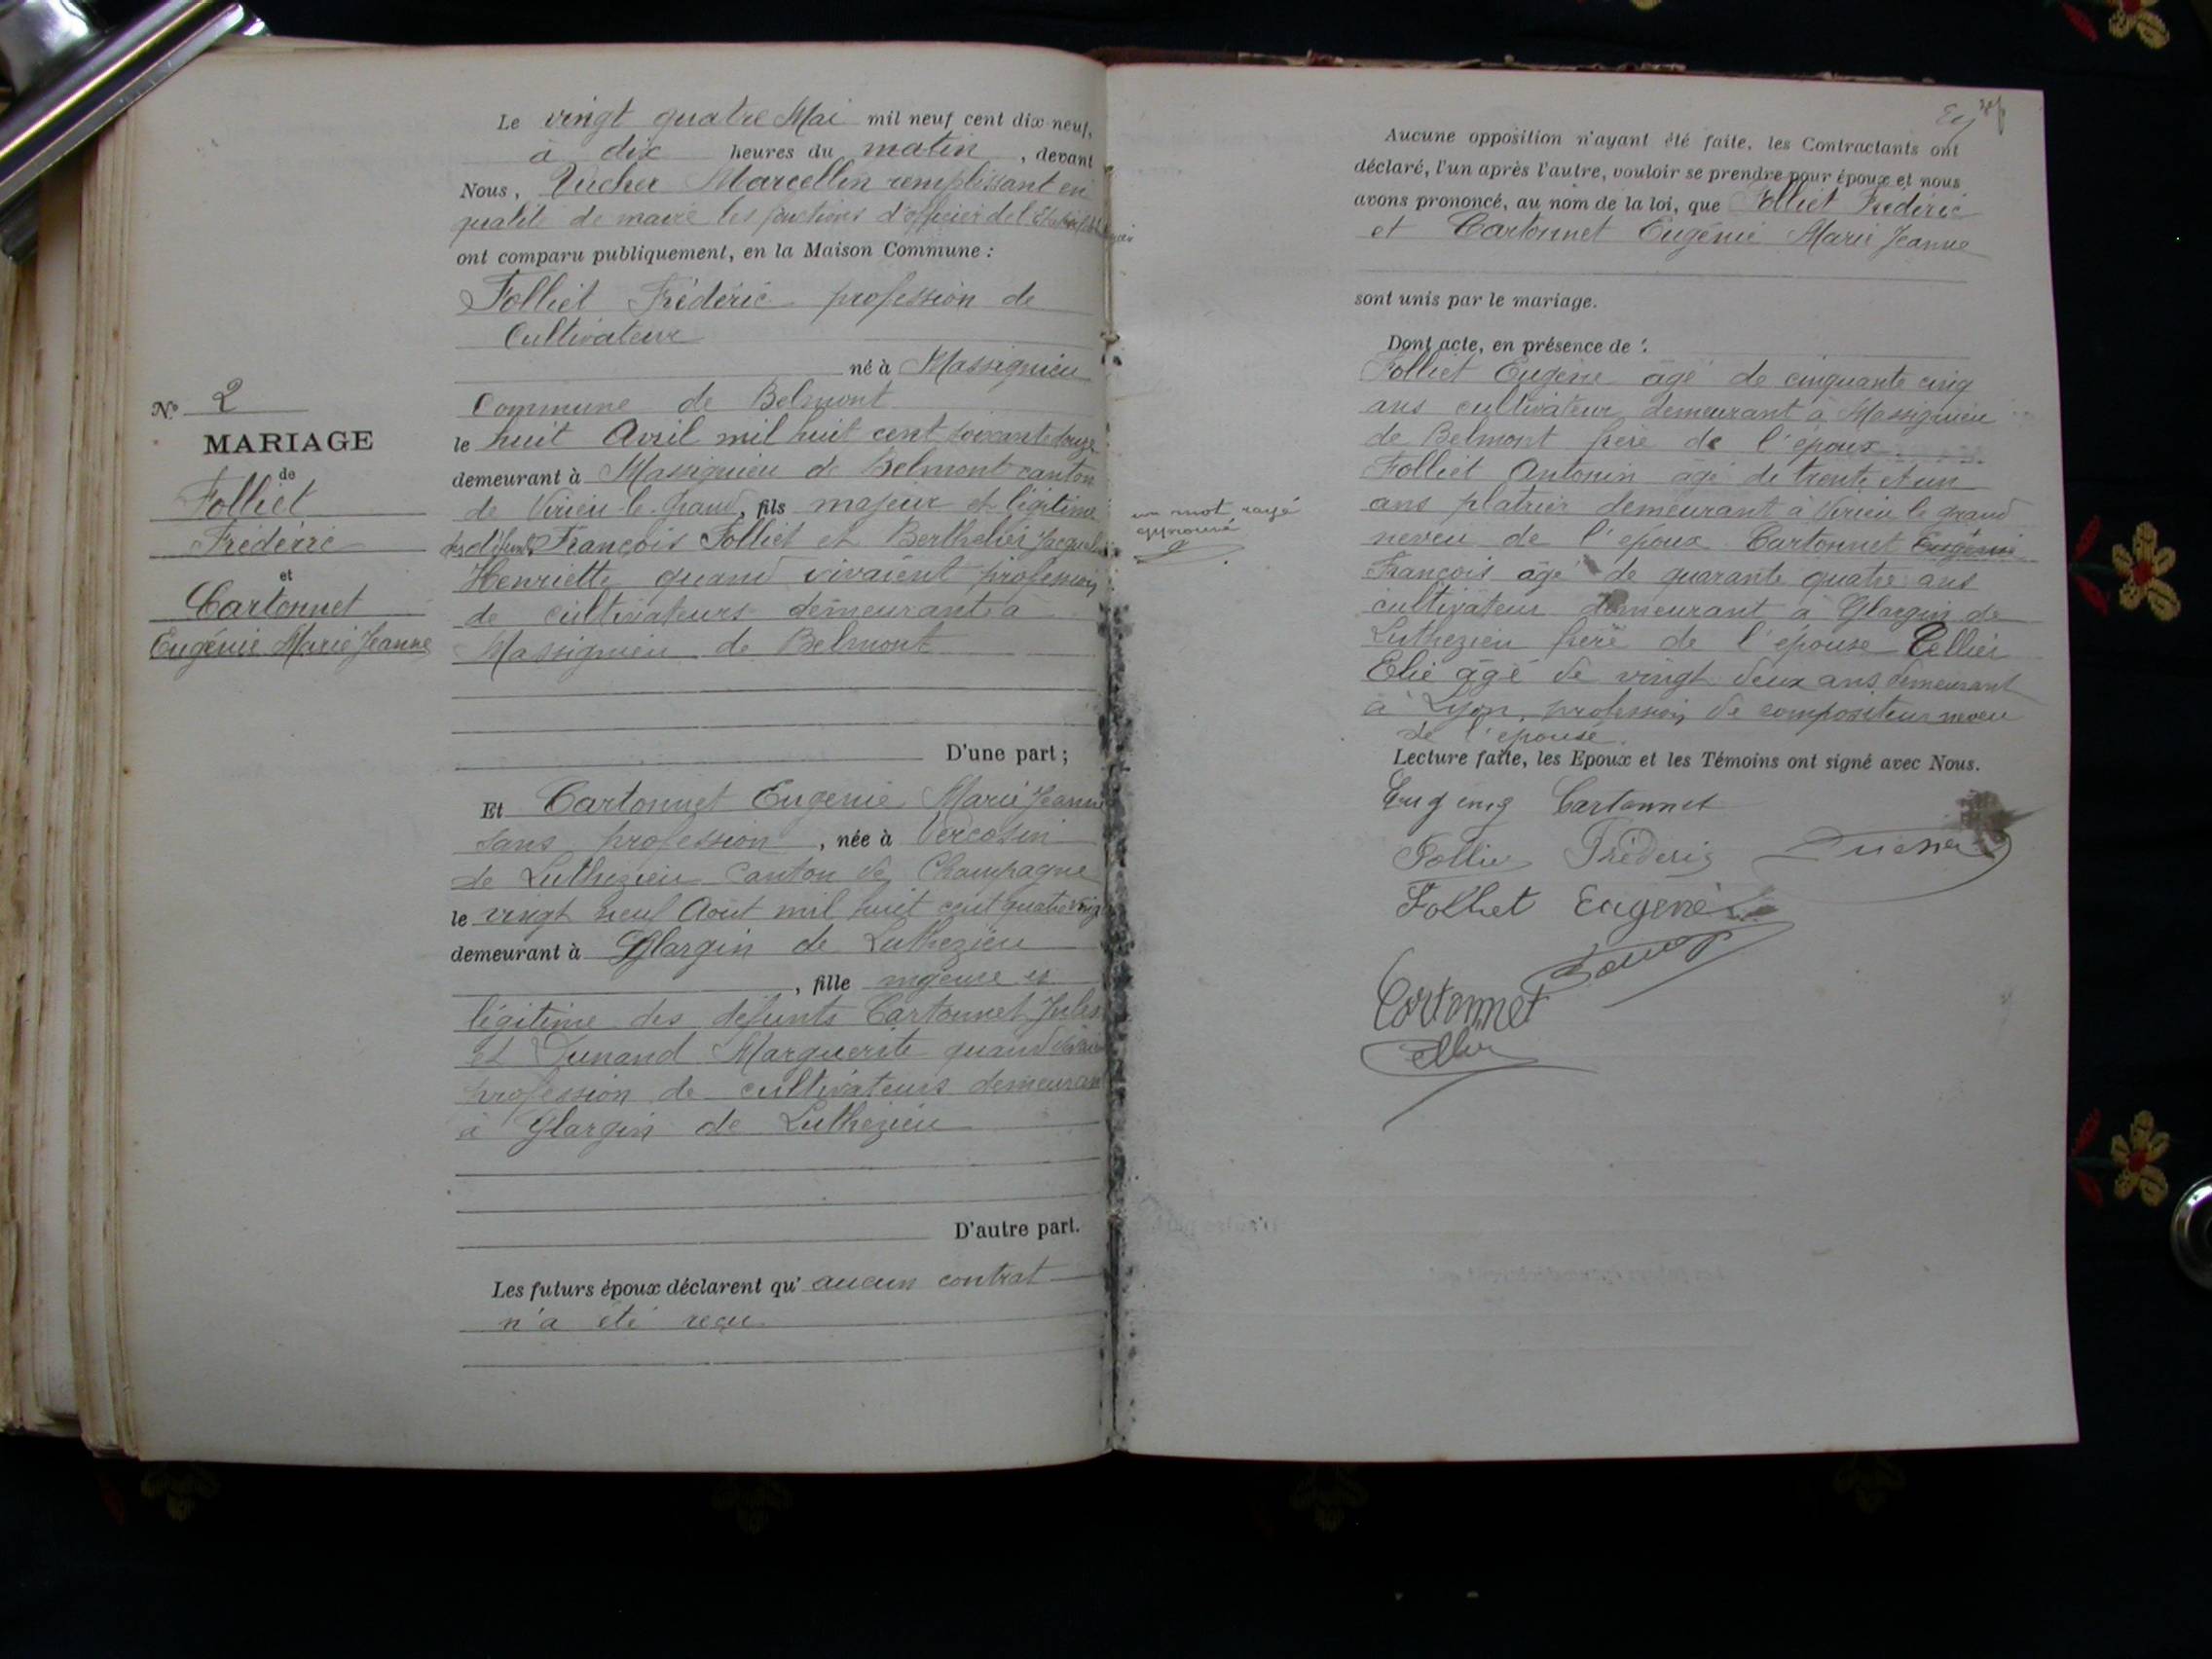 N° 2
MARIAGE
de
Folliet
Frédéric
et
Cartonnet
Eugénie Marie Jeanne
Le vingt quatre Mai mil neuf cent dix-neuf,
à dix heures du matin, devant
Nous, Marcellin remplissant en
qualité de maire les fonctions d'officier de l'Etat
ont comparu publiquement, en la Maison Commune :
Folliet Frédéric profession de
Cultivateur
né à Massignieu
Commune de Belmont
le huit Avril mil huit cent soixante douze
demeurant à Massignieu de Belmont canton
de Virieu le grand, fils majeur et légitime
des défunts François Folliet et Berthelier
Henriette quand vivaient profession
de cultivateurs demeurant à
Massignieu de Belmont
D'une part ;
Et Cartonnet Eugenie Marie Jeanne
sans profession, née à Vercosin
de Luthezieu Canton de Champagne
le vingt neuf Août mil huit cent quatre vingt
demeurant à Glargin de Luthezieu
, fille majeure et
légitime des défunts Cartonnet Jules
et Dunand Marguerite quand
profession de cultivateurs demeurant
à Glargin de Luthezieu
D'autre part.
Les futurs époux déclarent qu' aucun contrat
n'a été reçu
Aucune opposition n'ayant été faite, les Contractants ont
déclaré, l'un après l'autre, vouloir se prendre pour époux et nous
avons prononcé, au nom de la loi, que Folliet Frédéric
et Cartonnet Eugénie Marie Jeanne
sont unis par le mariage.
Dont acte, en présence de :
Folliet Eugène agé de cinquante cinq
ans cultivateur demeurant à Massignieu
de Belmont frère de l'époux
Folliet Antonin agé de trente et un
ans platrier demeurant à Virieu le grand
un mot rayé
neveu de l'époux Cartonnet Eugénie
François âgé de quarante quatre ans
cultivateur demeurant à Glargin de
Luthezieu frère de l'épouse Tellier
Elie âgé de vingt deux ans demeurant
à Lyon, profession de compositeur neveu
de l'épouse.
Lecture faite, les Epoux et les Témoins ont signé avec Nous.
Cartonnet
Frédéric
Folliet Eugène
Cartonnet